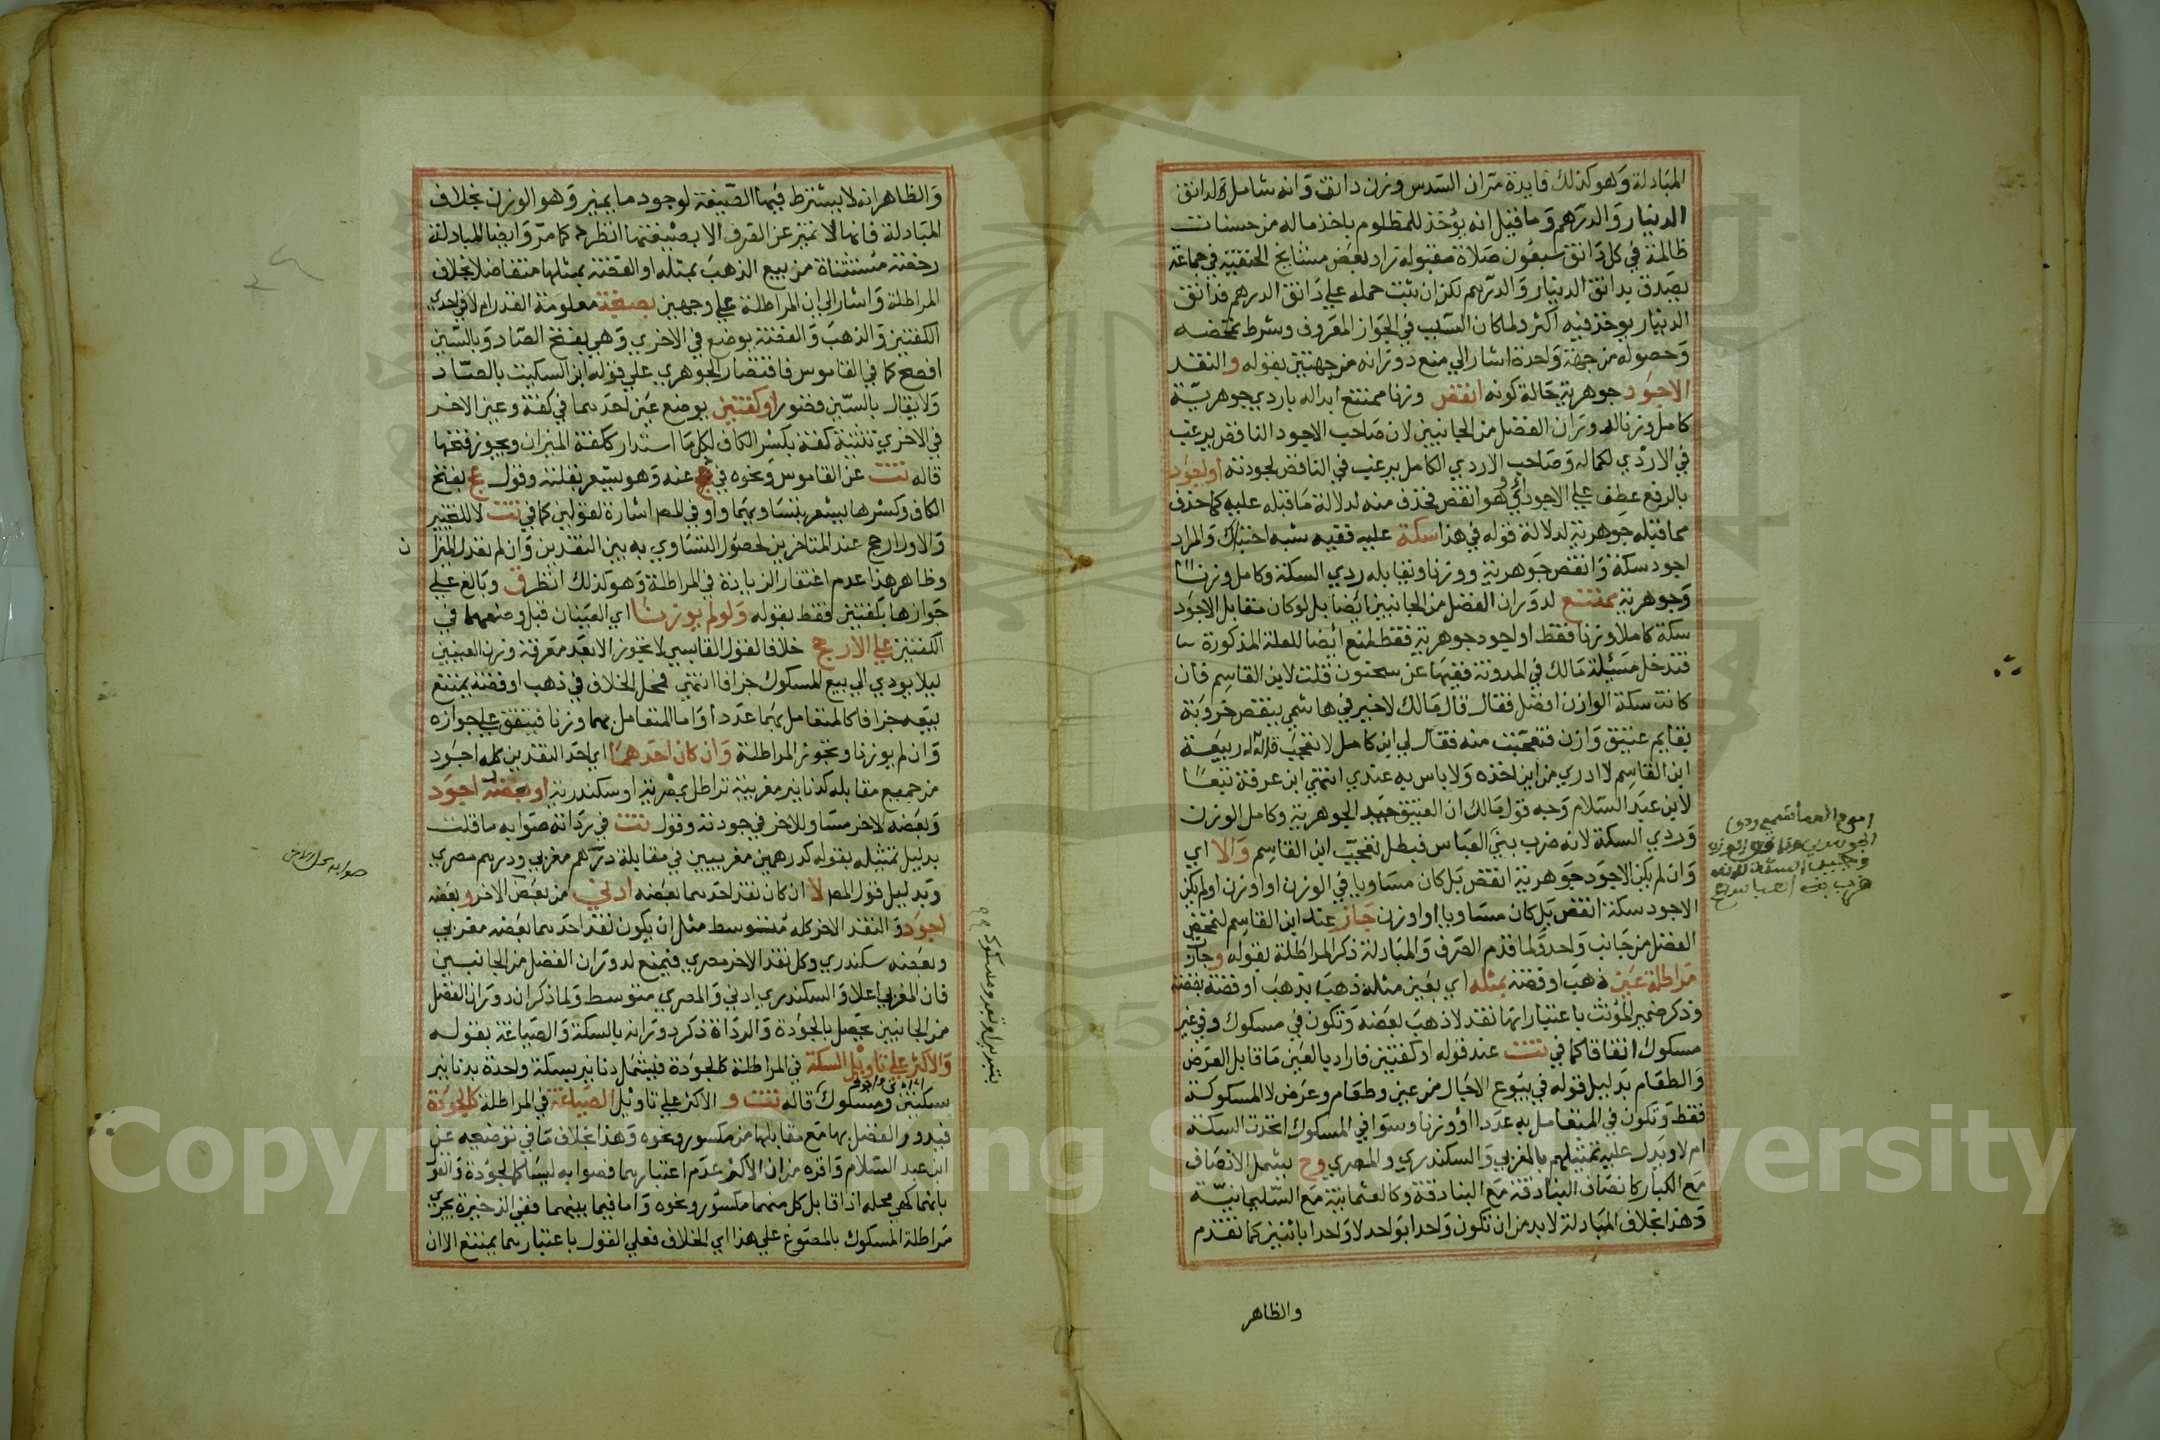 المبادلة وهو كذلك فايدة مر ان السدس وزن دانق وانه شامل لدانق
الدينار والدرهم وما قيل انه يؤخذ للمظلوم ياخذ ماله من حسنات
ظالمه في كل دانق سبعون صلاة مقبولة زاد بعض مشايخ الحنفية في جماعة
يصدق بدانق الدينار والدرهم لكن ان ثبت حمله علي دانق الدرهم فدانق
الدينار يوخذ فيه اكثر ولما كان السبب في الجواز المعروف وشرط تمحضه
وحصوله من جهة واحدة اشار الي منع دورانه من جهتين بقوله والنقد
الاجود جوهرية حالة كونه انقص وزنا ممتنع ابداله باردي جوهرية
كامل وزنا لدوران الفضل من الجانبين لان صاحب الاجود الناقص يرغب
في الاردي لكماله وصاحب الاردي الكامل يرغب في الناقص لجودته اواجود
بالرفع عطف علي الاجود اي وهو انقص فحذف منه لدلالة ما قبله عليه كما حذف
مما قبله جوهرية لدلالة قوله في هذا سكة عليه ففيه شبه احتباك والمراد
اجود سكة وانقص جوهرية ووزنا ويقابله ردي السكة وكامل وزنا
وجوهرية ممتنع لدوران الفضل من الجانبين ايضا بل لو كان مقابل الاجود
سكة كاملا وزنا فقط او اجود جوهرية فقط لمنع ايضا للعلة المذكورة
فتدخل مسئلة مالك في المدونة ففيها عن سحنون قلت لابن القاسم فان
كانت سكة الوازن افضل فقال قال مالك لا خير في هاشمي ينقص خروبة
بقايم عتيق وازن فتعجبت منه فقال لي ابن كامل لا تعجب قاله له ربيعة
ابن القاسم لا ادري من اين اخذه ولا باس به عندي انتهي ابن عرفة تبعا
لابن عبد السلام وجه قول مالك ان العتيق جيد الجوهرية وكامل الوزن
وردي السكة لانه ضرب بني العباس فبطل تعجب ابن القاسم والا اي
وان لم يكن الاجود جوهرية انقص بل كان مساويا في الوزن او اوزن اولم يكن
الاجود سكة انقص بل كان مساويا او اوزن جاز عند ابن القاسم لتمحض
الفضل من جانب واحد ولما قدم الصرف والمبادلة ذكر المراطلة بقوله وجازت
مراطلة عين ذهب او فضة بمثله اي بعين مثله ذهب بذهب او فضة بفضة
وذكر ضمير المؤنث باعتبار انها نقد لا ذهب لعضه وتكون في مسكوك وفي غير
مسكوك اتفاقا كما في تت عند قوله او كفتين فاراد بالعين ما قابل العرض
والطعام بدليل قوله في بيوع الاجال من عين وطعام وعرض لا المسكوكة
فقط وتكون في المتعامل به عددا او وزنا وسوا في المسكوك اتحدت السكة
ام لا ويدل عليه تمثيلهم بالمغربي والسكندري والمصري وح يشمل الانصاف
مع الكبار كانصاف البنادقة مع البنادقة وكالعثمانية مع السليمانية
وهذا بخلاف المبادلة لا بد من ان تكون واحدا بواحد لا واحدا باثنين كما تقدم
والظاهر
والظاهر انه لا يشترط فيها الصيغة لوجود ما يميز وهو الوزن بخلاف
المبادلة فانها لا تميز عن القرف الا بصيغتها انظر ح كما مر وايضا المبادلة
رخصة مستثناة من بيع الذهب بمثله او الفضة بمثلها متفاضلا بخلاف
المراطلة واشار الي ان المراطلة علي وجهين بصنجة معلومة القدر ام لا في احدي
الكفتين والذهب والفضة يوضع في الاخري وهي بفتح الصاد وبالسين
افصح كما في القاموس فاقتصار الجوهري علي قوله ابن السكيت بالصاد
ولا يقال بالسين قصور او كفتين يوضع عين احدهما في كفة وعين الاخر
في الاخري تثنية كفة بكسر الكاف لكل ما استدار ككفة الميزان ويجوز فتحها
قاله تت عن القاموس ونحوه في عج عنه وهو يشعر بقلته وقول ع بفتح
الكاف وكسرها يشعر بتساويهما واو في المص اشارة لقولين كما في تت لا للتخيير
والاول ارجح عند المتاخرين لحصول التساوي به بين النقدين وان لم نقدر الميزا
ن
وظاهر هذا عدم اغتفار الزيادة في المراطلة وهو كذلك انظر ق وبالغ علي
جوازها بكفتين فقط بقوله ولو لم يوزنا اي العينان قبل وضعهما في
الكفتين علي الارجح خلافا لقول القابسي لا تجوز الا بعد معرفة وزن العينين
ليلا يودي الي بيع المسكوك جزافا انتهي فمحل الخلاف في ذهب او فضة يمتنع
بيعه جزافا كالمتعامل بهما عددا واما المتعامل بهما وزنا فيتفق علي جوازه
وان لم يوزنا وتجوز المراطلة وان كان احدهما اي احد النقدين كله اجود
من جميع مقابله كدنانير مغربية تراطل بمصرية او سكندرية او بعضه اجود
وبعضه الاخر مساو للاخر في جودته وقول تت في رداته صوابه ما قلت
بدليل تمثيله بقوله كدرهمين مغربيين في مقابلة درهم مغربي ودرهم مصري
وبدليل قول المص لا ان كان نقد احدهما بعضه ادني من بعض الاخر وبعضه
اجود والنقد الاخر كله متوسط مثل ان يكون نقد احدهما بعضه مغربي
وبعضه سكندري وكل نقد الاخر مصري فيمنع لدوران الفضل من الجانبين
فان المغربي اعلا والسكندري ادني والمصري متوسط ولما ذكر ان دوران الفضل
من الجانبين يحصل بالجودة والرداة ذكر دورانه بالسكة والصياغة بقوله
والاكثر علي تاويل السكة في المراطلة كالجودة فيشمل دنانير بسكة واحدة بدنانير
سكتين ومسكوك قاله تت و الاكثر علي تاويل الصياغة في المراطلة كالجودة
فيدور الفضل بها مع مقابلها من مكسور ونحوه وهذا بخلاف ما في توضيحه عن
ابن عبد السلام واقره من ان الاكثر عدم اعتبارهما فصوابه ليسا كالجودة والقو
بانهما كهي محله اذا قابل كل منهما مكسور ونحوه واما فيما بينهما ففي الذخيرة يجري
مراطلة المسكوك بالمصوغ علي هذا اي الخلاف فعلي القول باعتبارهما يمتنع الا ان
Copyright © King Saud University